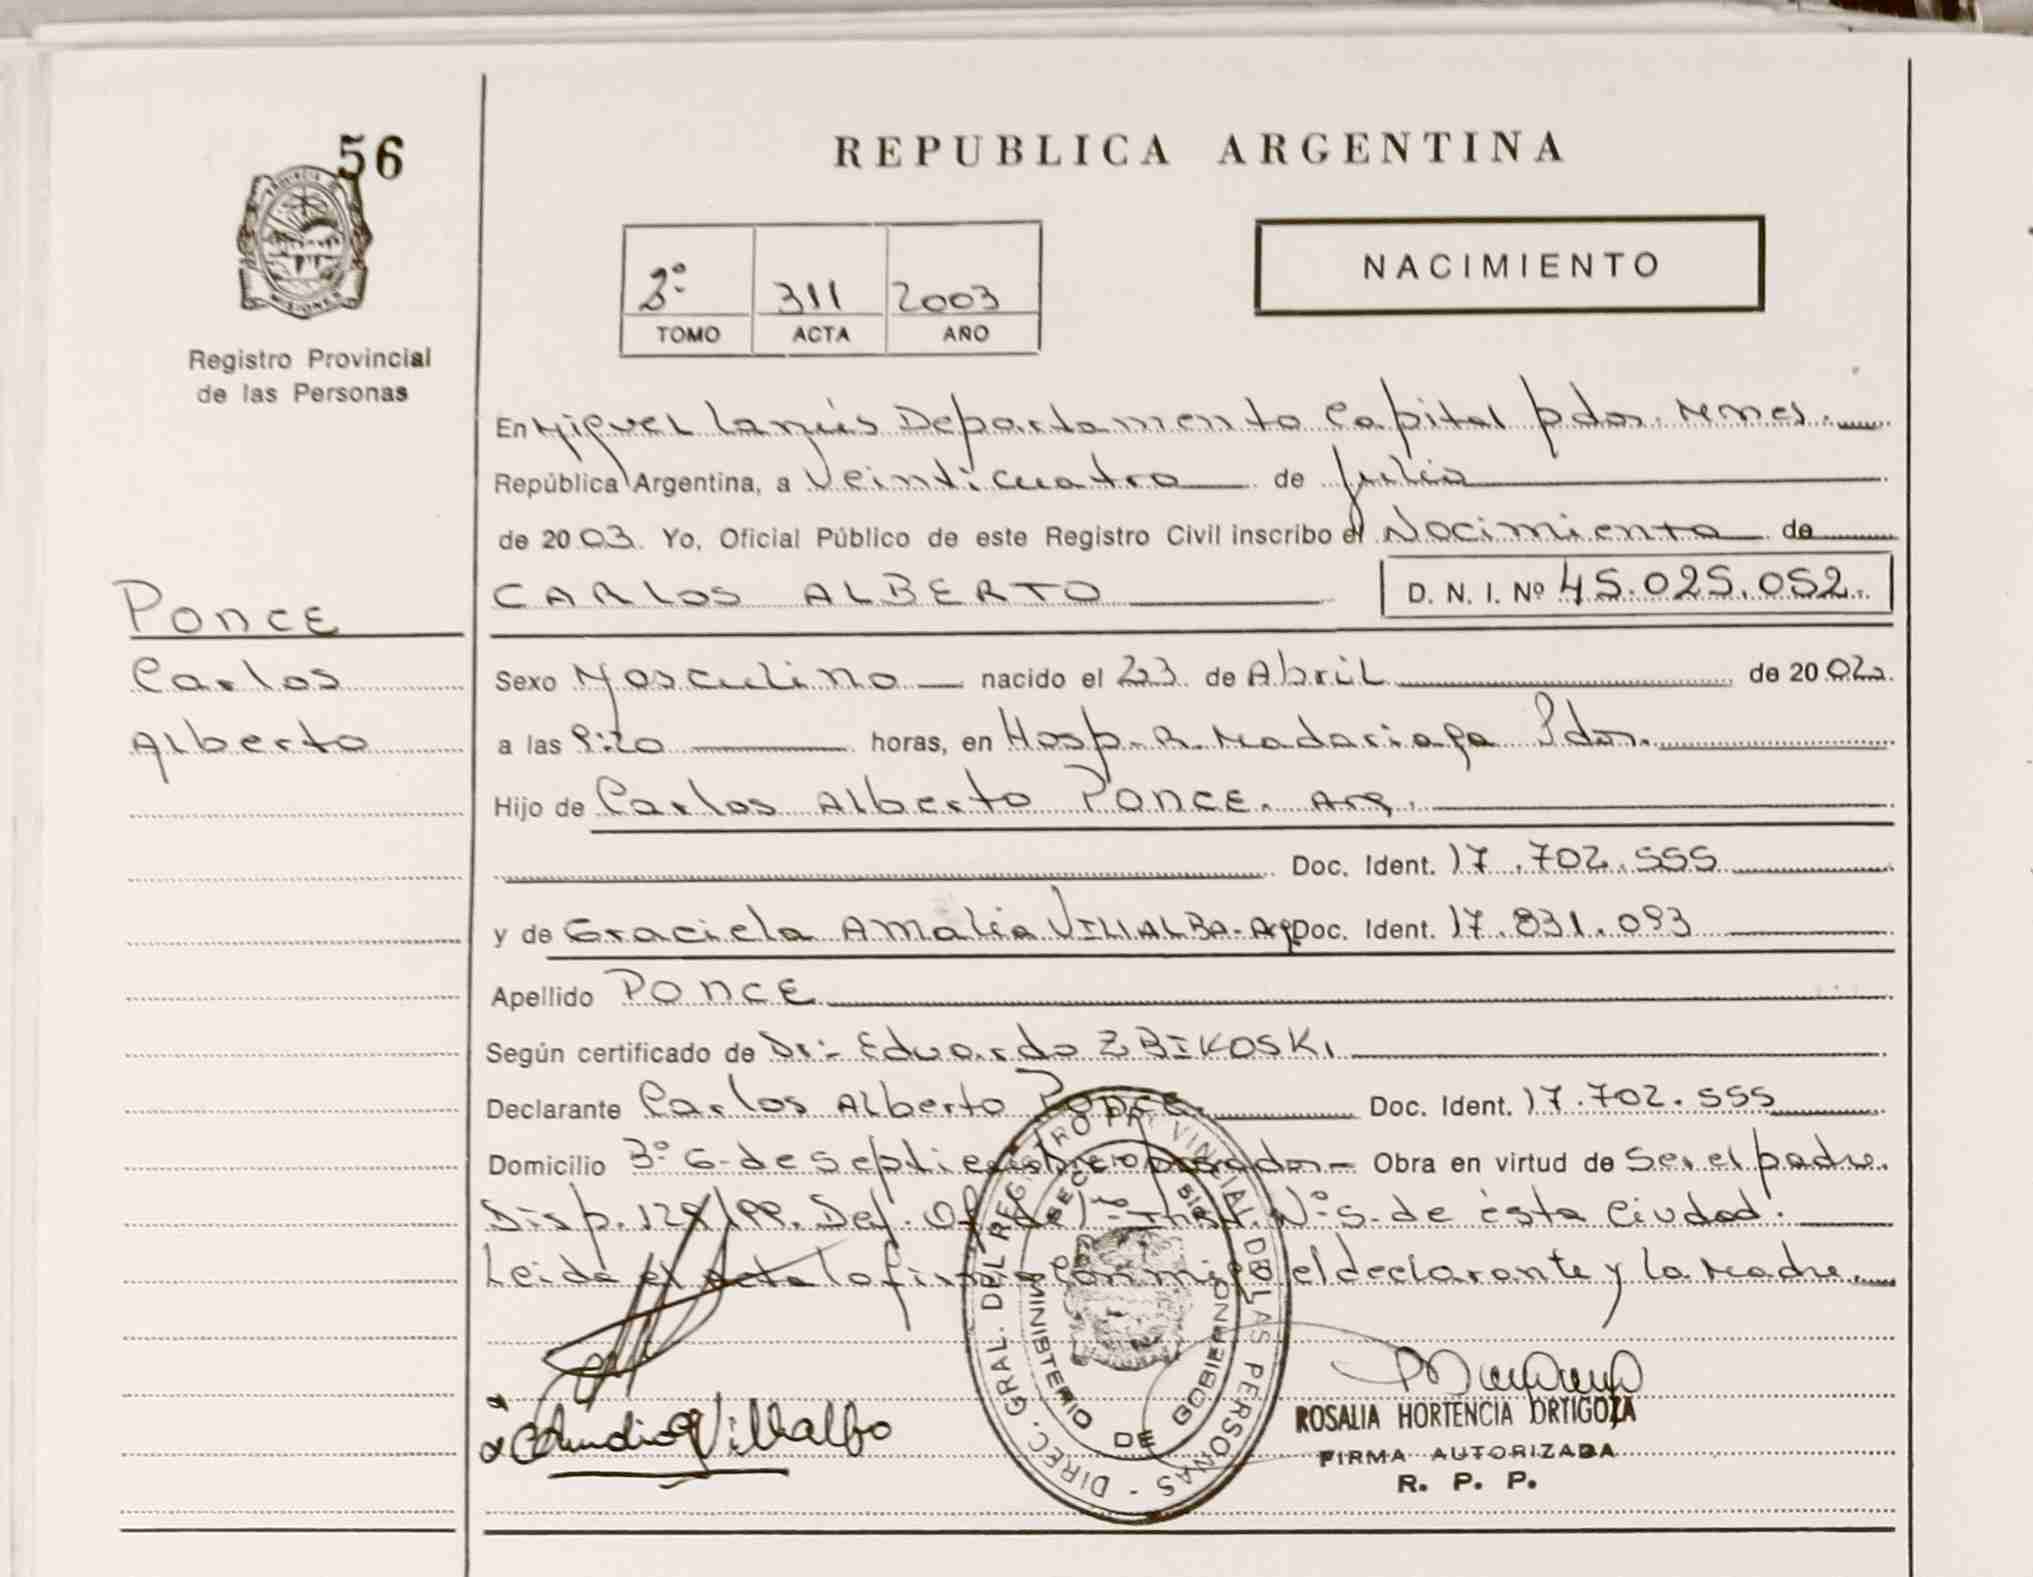 56
REPUBLICA ARGENTINA
PROVINCIA DE
MISIONES
Registro Provincial
de las Personas
2º 311 2003
TOMO ACTA AÑO
NACIMIENTO
En Miguel Lanús Departamento Capital Pdas. Mnes.
República Argentina, a Veinticuatro de Julio
de 2003. Yo, Oficial Público de este Registro Civil inscribo el Nacimiento de
CARLOS ALBERTO D. N. I. Nº 45.025.052.
Ponce
Carlos
Alberto
Sexo Masculino nacido el 23 de Abril de 2002
a las 9:20 horas, en Hosp. R. Madariaga Pdas.
Hijo de Carlos Alberto Ponce. Arg.
Doc. Ident. 17.702.555
y de Graciela Amalia VILLALBA - Arg. Doc. Ident. 17.831.093
Apellido Ponce
Según certificado de Dr: Eduardo ZBIKOSKI
Declarante Carlos Alberto Ponce. Doc. Ident. 17.702.555
Domicilio Bº 6 de Septiembre Obra en virtud de Ser el padre.
Disp. Def. Of. de 1º Inst. Nº 5. de ésta Ciudad.
Leida el acta la firma conmigo el declarante y la Madre.
DIREC. GRAL. DEL REGISTRO PROVINCIAL DE LAS PERSONAS -
MINISTERIO DE GOBIERNO
Villalba
ROSALIA HORTENCIA ORTIGOZA
FIRMA AUTORIZADA
R. P. P.